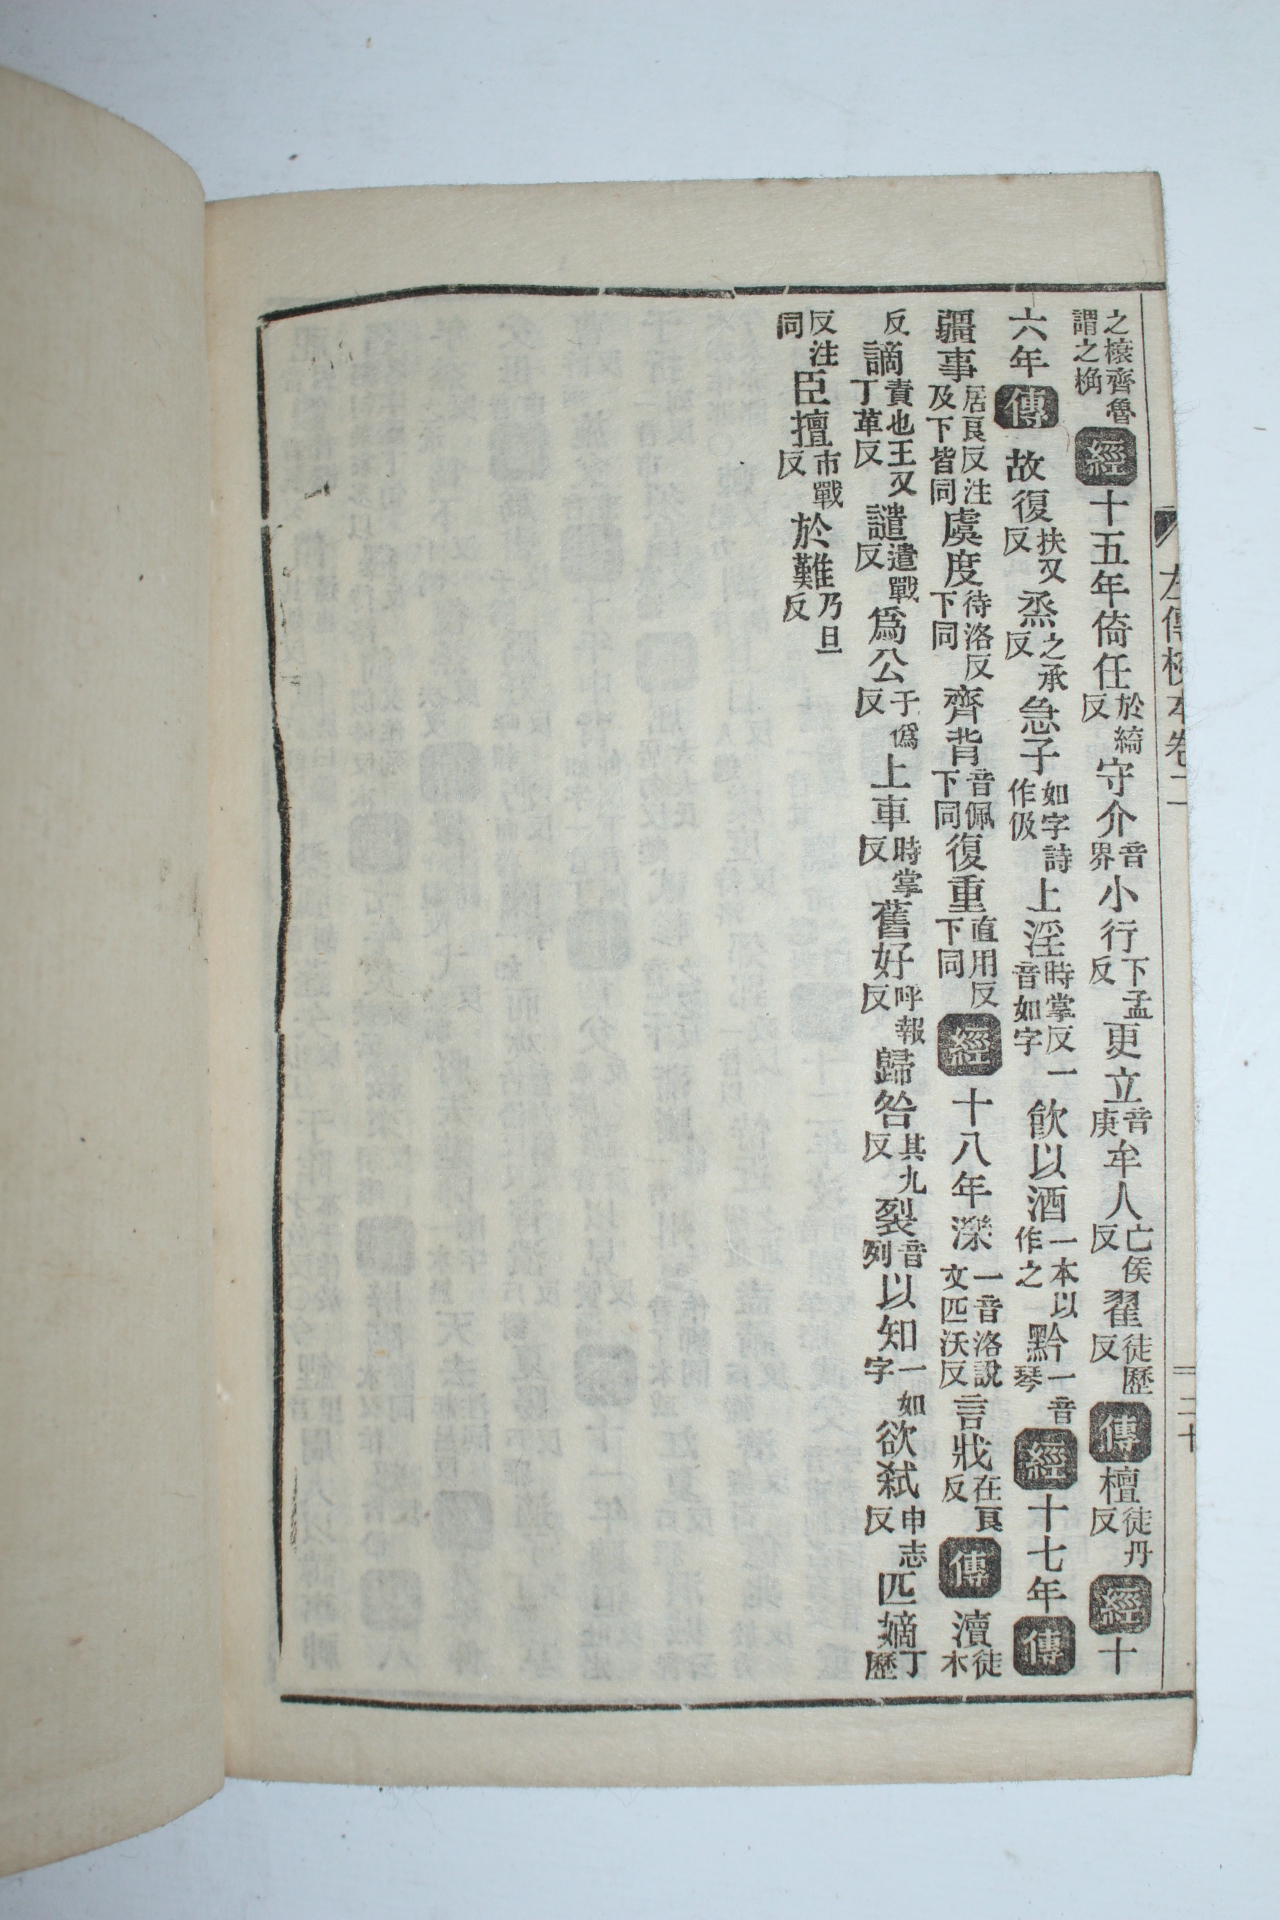 之榱齊魯謂之桷經十五年倚任於綺反守介音界小行下孟反更立音庚牟人亡侯反翟徒歷反傳檀徒丹反經十
六年傳故復扶又反烝之承反急子如字詩作伋上淫時掌反一音如字飮以酒一本以作之黔一音琴經十七年傳
疆事居良反注及下皆同虞度待洛反下同齊背音佩下同復重直用反下同經十八年濼一音洛說文匹沃反言戕在良反傳瀆徒木
反謫責也王又丁革反譴遣戰反爲公于僞反上車時掌反舊好呼報反歸咎其九反裂音列以知一如字欲弒申志反匹嫡丁歷
反注同臣擅市戰反於難乃旦反
左傳校本卷二
二十